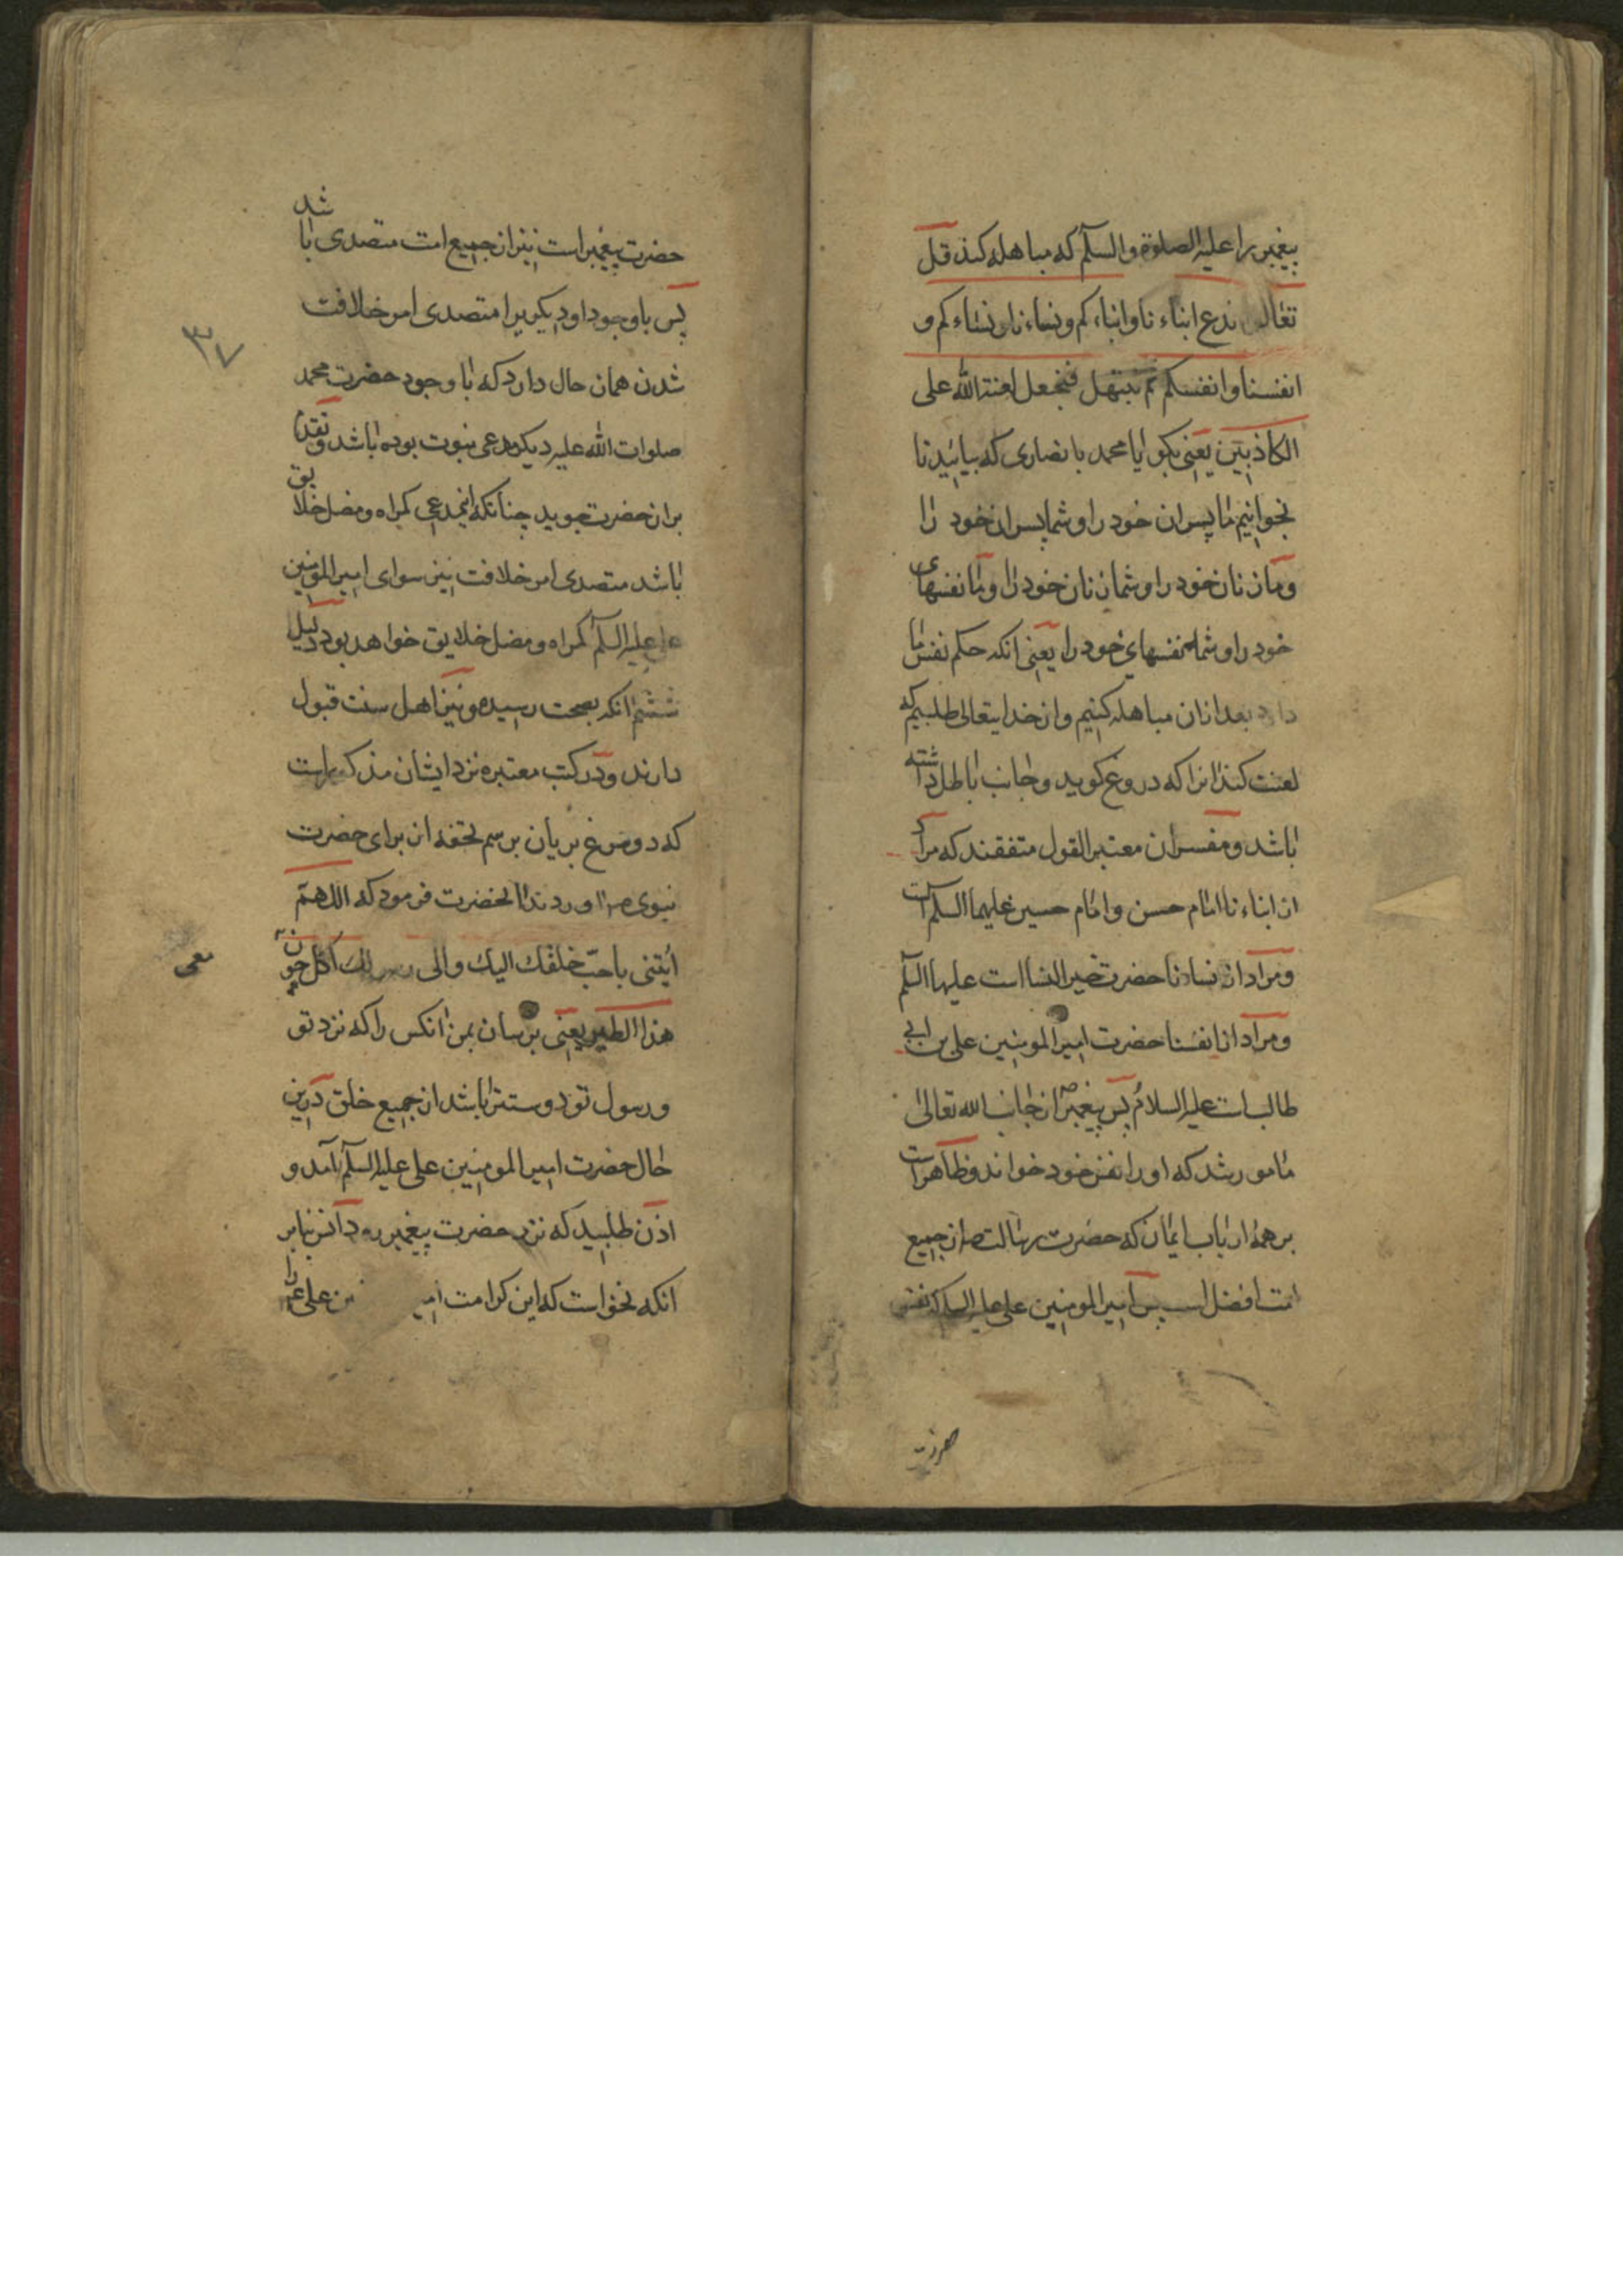 پیغمبر را علیه الصلوة والسلم که مباهله کند قل
تعالوا ندع ابناءنا وابناءکم ونساءنا ونساءکم و
انفسنا وانفسکم ثم نبتهل فنجعل لعنة الله علی
الکاذبین یعنی بکو ایا محمد با نصاری که بیائید تا
بخوانیم ما پسران خود را و شما پسران خود را
و ما زنان خود را و شما زنان خود را و ما نفسهای
خود را و شما نفسهای خود را یعنی انکه حکم نفس ما
دارد بعد ازان مباهله کنیم و از خدایتعالی طلبیم که
لعنت کند انرا که دروغ کوید و جانب باطل داشته
باشد و مفسران معتبر القول متفقند که مراد
از ابناءنا امام حسن و امام حسین علیهما السلم است
و مراد از نساءنا حضرت خیر النسا است علیها السلم
و مراد از انفسنا حضرت امیر المومنین علی بن ابی
طالب است علیه السلام پس پیغمبر ص از جانب الله تعالی
مامور شد که او را نفس خود خواند و ظاهر است
بر همه ارباب ایمان که حضرت رسالت ص از جمیع
امت افضل است پس امیر المومنین علی علیه السلم که نفس
حضرت
حضرت پیغمبر است نیز از جمیع امت متصدی باشد
پس باوجود او دیکریرا متصدی امر خلافت
شدن همان حال دارد که با وجود حضرت محمد
صلوات الله علیه دیکر مدعی نبوت بوده باشد و تقدم
بر ان حضرت جوید چنانکه این مدعی کمراه و مضل خلایق
باشد متصدی امر خلافت نیز سوای امیر المؤمنین
علی علیه السلم کمراه و مضل خلایق خواهد بود دلیل
ششم انکه بصحت رسیده و نیز اهل سنت قبول
دارند و در کتب معتبره نزد ایشان مذکور است
که دو مرغ بریان برسم تحفه از برای حضرت
نبوی ص اوردند انحضرت فرمود که اللهم
ائتنی باحب خلقک الیک والی رسولک اکل
معی
هذا الطیر یعنی برسان بمن انکس را که نزد تو
و رسول تو دوستتر باشد از جمیع خلق درین
حال حضرت امیر المومنین علی علیه السلم آمد و
اذن طلبید که نزد حضرت پیغمبر رود انس بنابر
انکه نخواست که این کرامت امیر علی ع را
۳۷